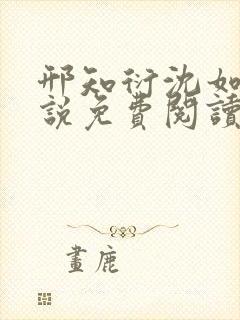 邢知衍沈如
說免費閱讀
畫鹿